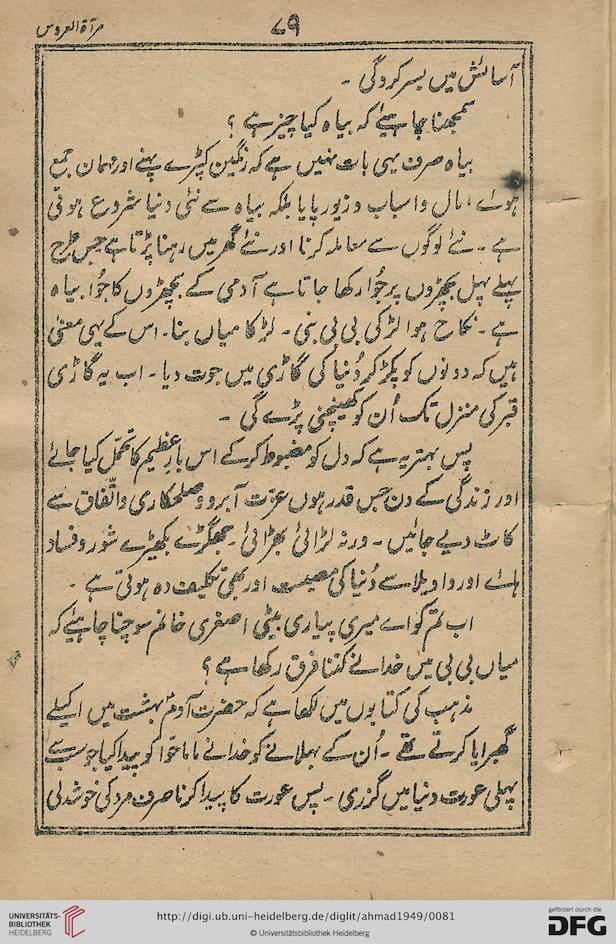 مرآۃ العروس
۷۹
آسائش میں بسر کرو گی ۔
سمجھنا چاہیئے کہ بیاہ کیا چیز ہے ؟
بیاہ صرف یہی بات نہیں ہے کہ رنگین کپڑے پہنے اور مہمان جمع
ہوئے ، مال و اسباب و زیور پایا بلکہ بیاہ سے نئی دنیا شروع ہوتی
ہے ۔ نئے لوگوں سے معاملہ کرنا اور نئے گھر میں رہنا پڑتا ہے جس طرح
پہلے پہل بچھڑوں پر جُوا رکھا جاتا ہے آدمی کے بچھڑوں کا جُوا بیاہ
ہے ۔ نکاح ہوا لڑکی بی بی بنی ۔ لڑکا میاں بنا ۔ اس کے یہی معنیٰ
ہیں کہ دونوں کو پکڑ کر دُنیا کی گاڑی میں جوت دیا ۔ اب یہ گاڑی
قبر کی منزل تک اُن کو کھینچنی پڑے گی ۔
پس بہتر یہ ہے کہ دل کو مضبوط کر کے اس بارِ عظیم کا تحمّل کیا جائے
اور زندگی کے دن جس قدر ہوں عزّت آبرو و صلحکاری و اتّفاق سے
کاٹ دیے جائیں ۔ ورنہ لڑائی بھڑائی ۔ جھگڑے بکھیڑے شور و فساد
ہائے اور واویلا سے دُنیا کی مصیبت اور بھی تکلیف دہ ہوتی ہے ۔
اب تم کو اے میری پیاری بیٹی اصغری خانم سوچنا چاہیئے کہ
میاں بی بی میں خدا نے کتنا فرق رکھا ہے ؟
مذہب کی کتابوں میں لکھا ہے کہ حضرت آدم بہشت میں اکیلے
گھبرایا کرتے تھے ۔ اُن کے بہلانے کو خدا نے ماما حوّا کو پیدا کیا جو سب سے
پہلی عورت دنیا میں گزری ۔ پس عورت کا پیدا کرنا صرف مرد کی خوشدلی
UNIVERSITÄTS-
BIBLIOTHEK
HEIDELBERG
http://digi.ub.uni-heidelberg.de/diglit/ahmad1949/0081
© Universitätsbibliothek Heidelberg
gefördert durch die
DFG